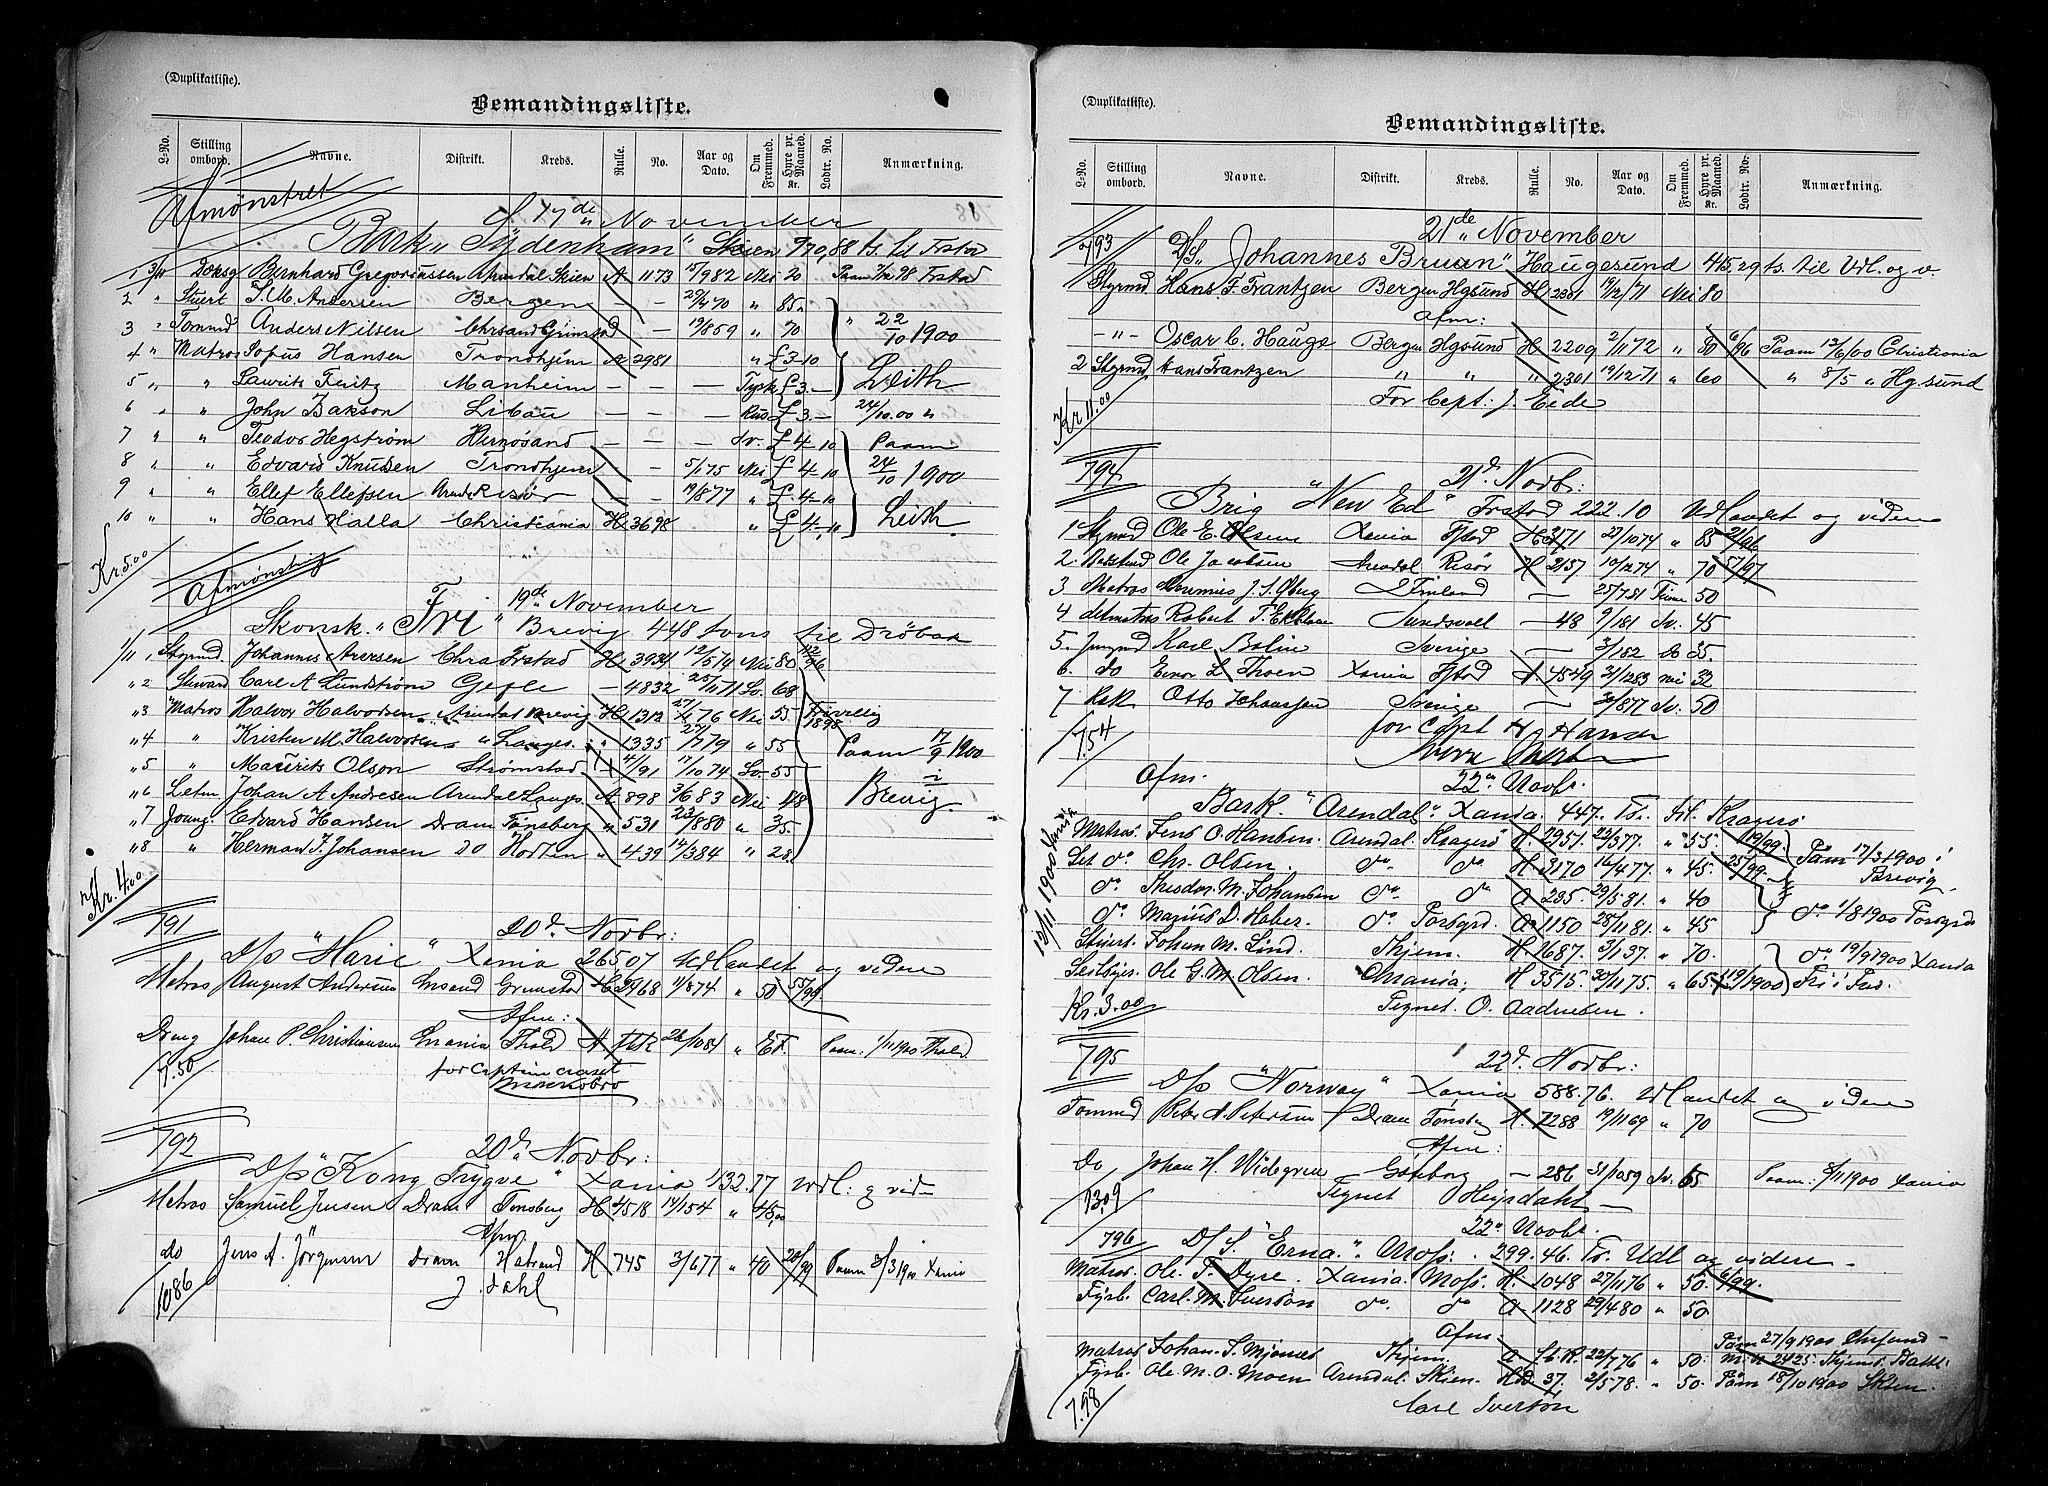 (Duplikatliste).
Bemandingsliste.
L-No. Stilling ombord. Navne. Distrikt. Kreds. Rulle. No. Aar og Dato. Om Fremmed. Hyre pr. Maaned. Kr. Lodtr. No. Anmærkning.
Afmønstret
17de November
Bark "Sydenham" Skien 970,88 ts. til Frstad
1 3/11 Bernhard Gregoriussen Arendal Skien A 1173 15/9 82 Nei 20 Paam 98 Frstad
2 " Stuert J. M. Andersen Bergen — — 70 " 85
3 " Tømmd Anders Nilsen Chrsand Grimstad — 19/8 69 " 70 " 22/10 1900
4 " Matros Sofus Hansen Trondhjem A 2981 " £ 3-10
5 " " Laurits Fritz Manheim — — — Tysk £ 3.- Leith
6 " " John Bakson Libau — — — Rus £ 3.- 24/10.00 "
7 " " Teodor Hegstrøm Hernøsand — — — Sv. £ 4-10 Paam
8 " " Edvard Knudsen Trondhjem — 5/1 75 Nei £ 4-10 24/10 1900
9 " " Ellef Ellefsen Arendal Risør — — 19/8 77 " £ 4-10
10 " " Hans Halla Christiania H 3698 " £ 4-10 Leith.
Kr 5.00
Afmønstring
19de November
Skonsk. "Fri" Brevig 448 tons til Drøbak
1/11 1 Styrmd Johannes Iversen Chra Frstad H 3934 Nei 80 12/96
" 2 Steward Carl A Lundstrøm Gefle — 4832 25/11 71 Sv. 68
" 3 Matros Halvor Halvorsen Arendal Brevig H 1312 76 Nei 55 Frivillig 1898
" 4 " Kristen M. Halvorsen " Langes. " 1335 27/1 79 " 55 Paam 17/9 1900
" 5 " Mauritz Olson Strømstad 4/91 17/10 74 Sv. 55 i
" 6 Letm Johan A Andresen Arendal Langes. A 898 3/6 83 Nei 48 Brevig
" 7 Joung. Edvard Hansen Dram Tønsberg " 531 23/8 80 " 35
" 8 " Herman J. Johansen do Horten " 439 14/3 84 " 28
Kr. 4.00
791
20d. Novbr:
D/S "Marie" Xania 265 07 Udlandet og videre
Matros August Andersen Grimstad H 2968 1/8 74 " 50 55/99
Afm:
Johan P. Christiansen Crania Thold A 26/10 84 " Paam: 1/11 1900 Thold
7.50
for Captein
792
20d Novbr:
D/S "Kong Trygve" Xania 132.77 Udl: og vid-
Matros Samuel Jensen Dram Tønsberg H 4518 14/1 54 " 45.00
Afm
do Jens A. Jørgensen Dram H 745 3/6 77 " 40 20/99 Paam 3/3 1900 Xania
10.86
J. Dahl
(Duplikatliste).
Bemandingsliste.
L-No. Stilling ombord. Navne. Distrikt. Kreds. Rulle. No. Aar og Dato. Om Fremmed. Hyre pr. Maaned. Kr. Lodtr. No. Anmærkning.
793
21de November
D/S "Johannes Bruun" Haugesund 415.29 ts. til Udl. og v.
Styrmd Hans F. Frantzen Bergen Hgsund H 2301 19/12 71 Nei 80
Afm:
— " — Oscar C. Hauge Bergen Hgsund H 2209 2/11 72 " 80 6/96 Paam 12/6/00 Christiania
2 Styrmd Hans Frantzen " " " 2301 19/12 71 " 60 " 8/5 " Hgsund
For Capt. J. Eide
Kr 11.00
794
21d. Novbr:
Brig "New Ed" Frstad 222.10 Udlandet og videre
1 Styrmd Ole E. Olsen Xania Fstad H 3171 27/10 74 " 85 2/96
2. Ole Jacobsen Arendal Risør H 2157 10/12 74 " 70 5/97
3 Matros J. S. Øberg Finland — 25/7 81 50
4 Letmatros Robert T. Sundsvall — 48 9/1 81 Sv. 45
5. Jungmd Karl Bolin Sverige — 3/1 82 do 35.
6. do Einor L Thoen Xania Fstad A 7549 21/12 83 nei 32
7 Kok Otto Johansson Sverige — 30/8 77 Sv. 50
7.54
for Capt H. Hansen
Afm.
22n Novbr.
Bark "Arendal" Xania. 447. Ts. til Kragerø
Matros Jens O. Hansen. Arendal. Kragerø H. 2951. 22/3 77. " 55. 119/99. Paam 17/3 1900 i
Let do. Chr. Olsen. do do H. 3170 16/4 77. " 45. 25/99. Brevig.
do. Theodor M. Johansen do. do A 235. 29/5 81. " 40
do. Marius D. Haber. do. Porsgrd. A 1150 28/11 81. " 45 do 1/8 1900 Porsgrd
Stuert. Johan M. Lind. Thjem. H. 1687. 3/1 37. " 70. do 19/9 1900 Xania
Seilsyr. Ole G. M. Olsen. Chrania; H 3515. 30/11 75. " 65. 119/1900 Fri i Fred.
Kr. 3.00
Tegnet. O. Aadnesen.
795
22d. Novbr:
D/S "Norway" Xania 588.76. Udlandet og videre
Tømmd Peter A. Petersen Dram Tønsberg H. 1288 19/11 69 " 70
Afm:
do Johan H. Widegren Goteborg — 286 31/10 59 Sv. 65 Paam: 8/11 1900 Xania
13.09
Tegnet Heyerdahl
796
22n Novbr.
D/S. "Erna." Moss. 299.46. Ts. Udl og videre
Matros Ole T. Dyre. Xania. Moss. H. 1048 27/1 76 " 50. 6/99.
Fyrb. Carl. M. Svertson do. do A 1128 29/4 80 " 50
Afm
Matros Johan. S. Mjønnes Thjem. A 22/7 76 " 50. Paam 27/9 1900 Chrsund
Fyrb. Ole. M. O. Moen Arendal. Skien. 37. 2/5 78. " 50. Paam 18/10 1900 Skien.
7.98
Carl Svertson